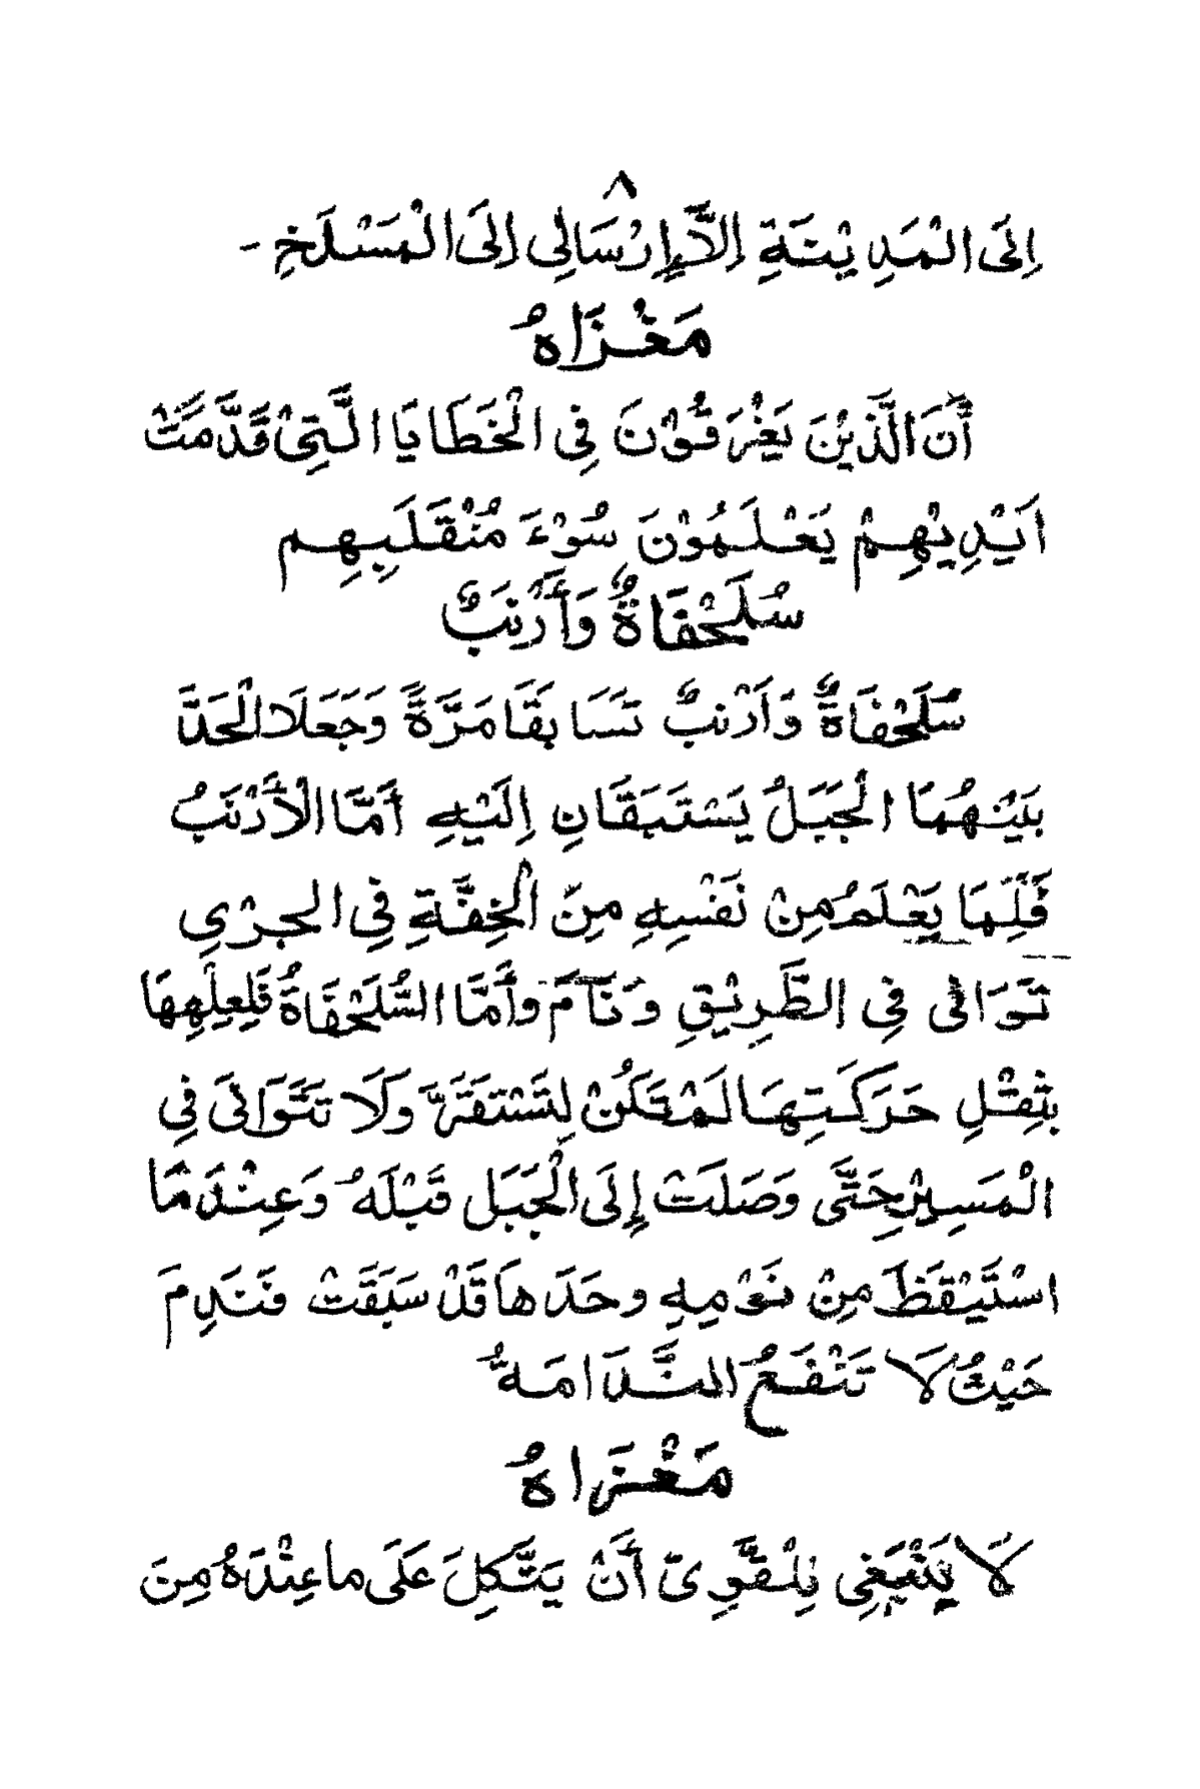 ٨
اِلَى الْمَدِيْنَةِ اِلَّا إِرْسَالِي اِلَى الْمَسْلَخِ -
مَغْزَاهُ
أَنَّ الَّذِيْنَ يَغْرَقُوْنَ فِي الْخَطَايَا الَّتِيْ قَدَّمَتْ
اَيْدِيْهِمْ يَعْلَمُوْنَ سُوْءَ مُنْقَلَبِهِم
سُلَحْفَاةٌ وَأَرْنَبٌ
سُلَحْفَاةٌ وَاَرْنَبٌ تَسَابَقَا مَرَّةً وَجَعَلَا الْحَدَّ
بَيْنَهُمَا الْجَبَلُ يَسْتَبَقَانِ اِلَيْهِ أَمَّا الْأَرْنَبُ
فَلِمَا يَعْلَمُ مِنْ نَفْسِهِ مِنَ الْخِفَّةِ فِي الجرْيِ
تَوَانٰى فِي الطَّرِيْقِ وَنَامَ وأَمَّا السُّلَحْفَاةُ فَلِعِلْمِهَا
بِثِقْلِ حَرَكَتِهَا لَمْ تَكُنْ لِتَسْتَقَرَّ وَلَا تَتَوَانَى فِي
الْمَسِيْرِ حَتَّى وَصَلَتْ إِلَى الْجَبَلِ قَبْلَهُ وَعِنْدَمَا
اسْتَيْقَظَ مِنْ نَوْمِهِ وجَدَهَا قَدْ سَبَقَتْ فَنَدِمَ
حَيْثُ لَا تَنْفَعُ النَّدَامَةُ
مَغْزَاهُ
لَا يَنْبَغِي لِلْقَوِيِّ أَنْ يَتَّكِلَ عَلَى ما عِنْدَهُ مِنَ